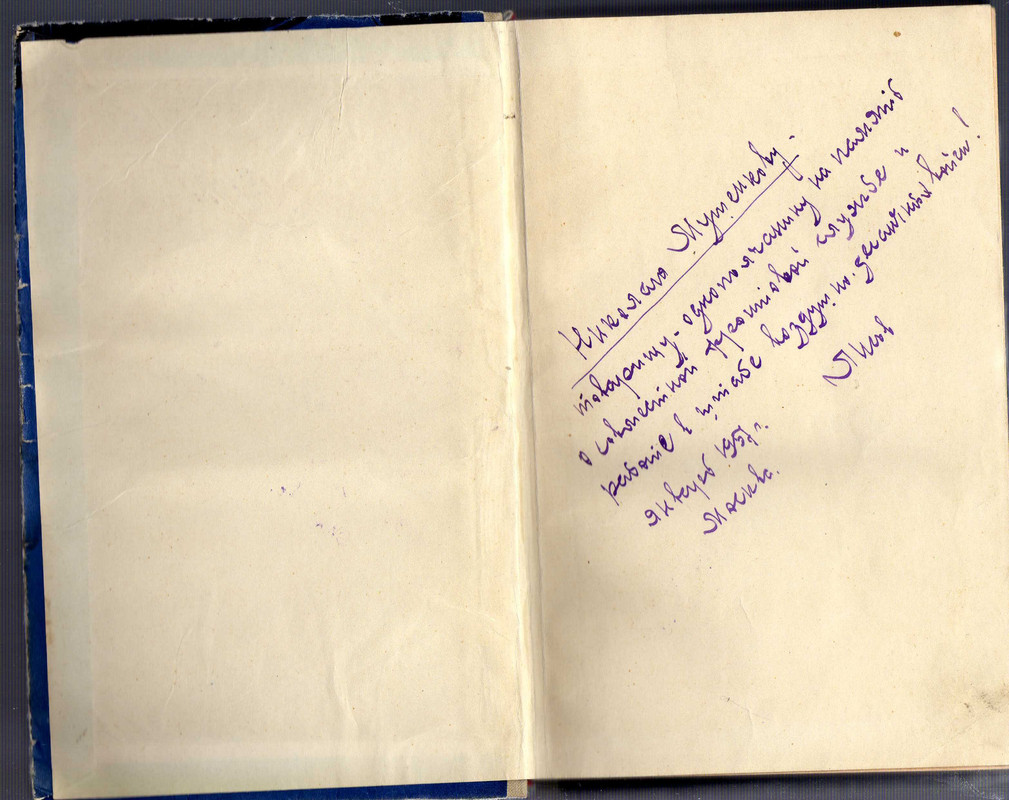 Николаю Мутенкову -
товарищу-однополчанину на память
о совместной фронтовой службе и
работе в штабе воздушно-десантных войск!
январь 1957 г.
Москва.